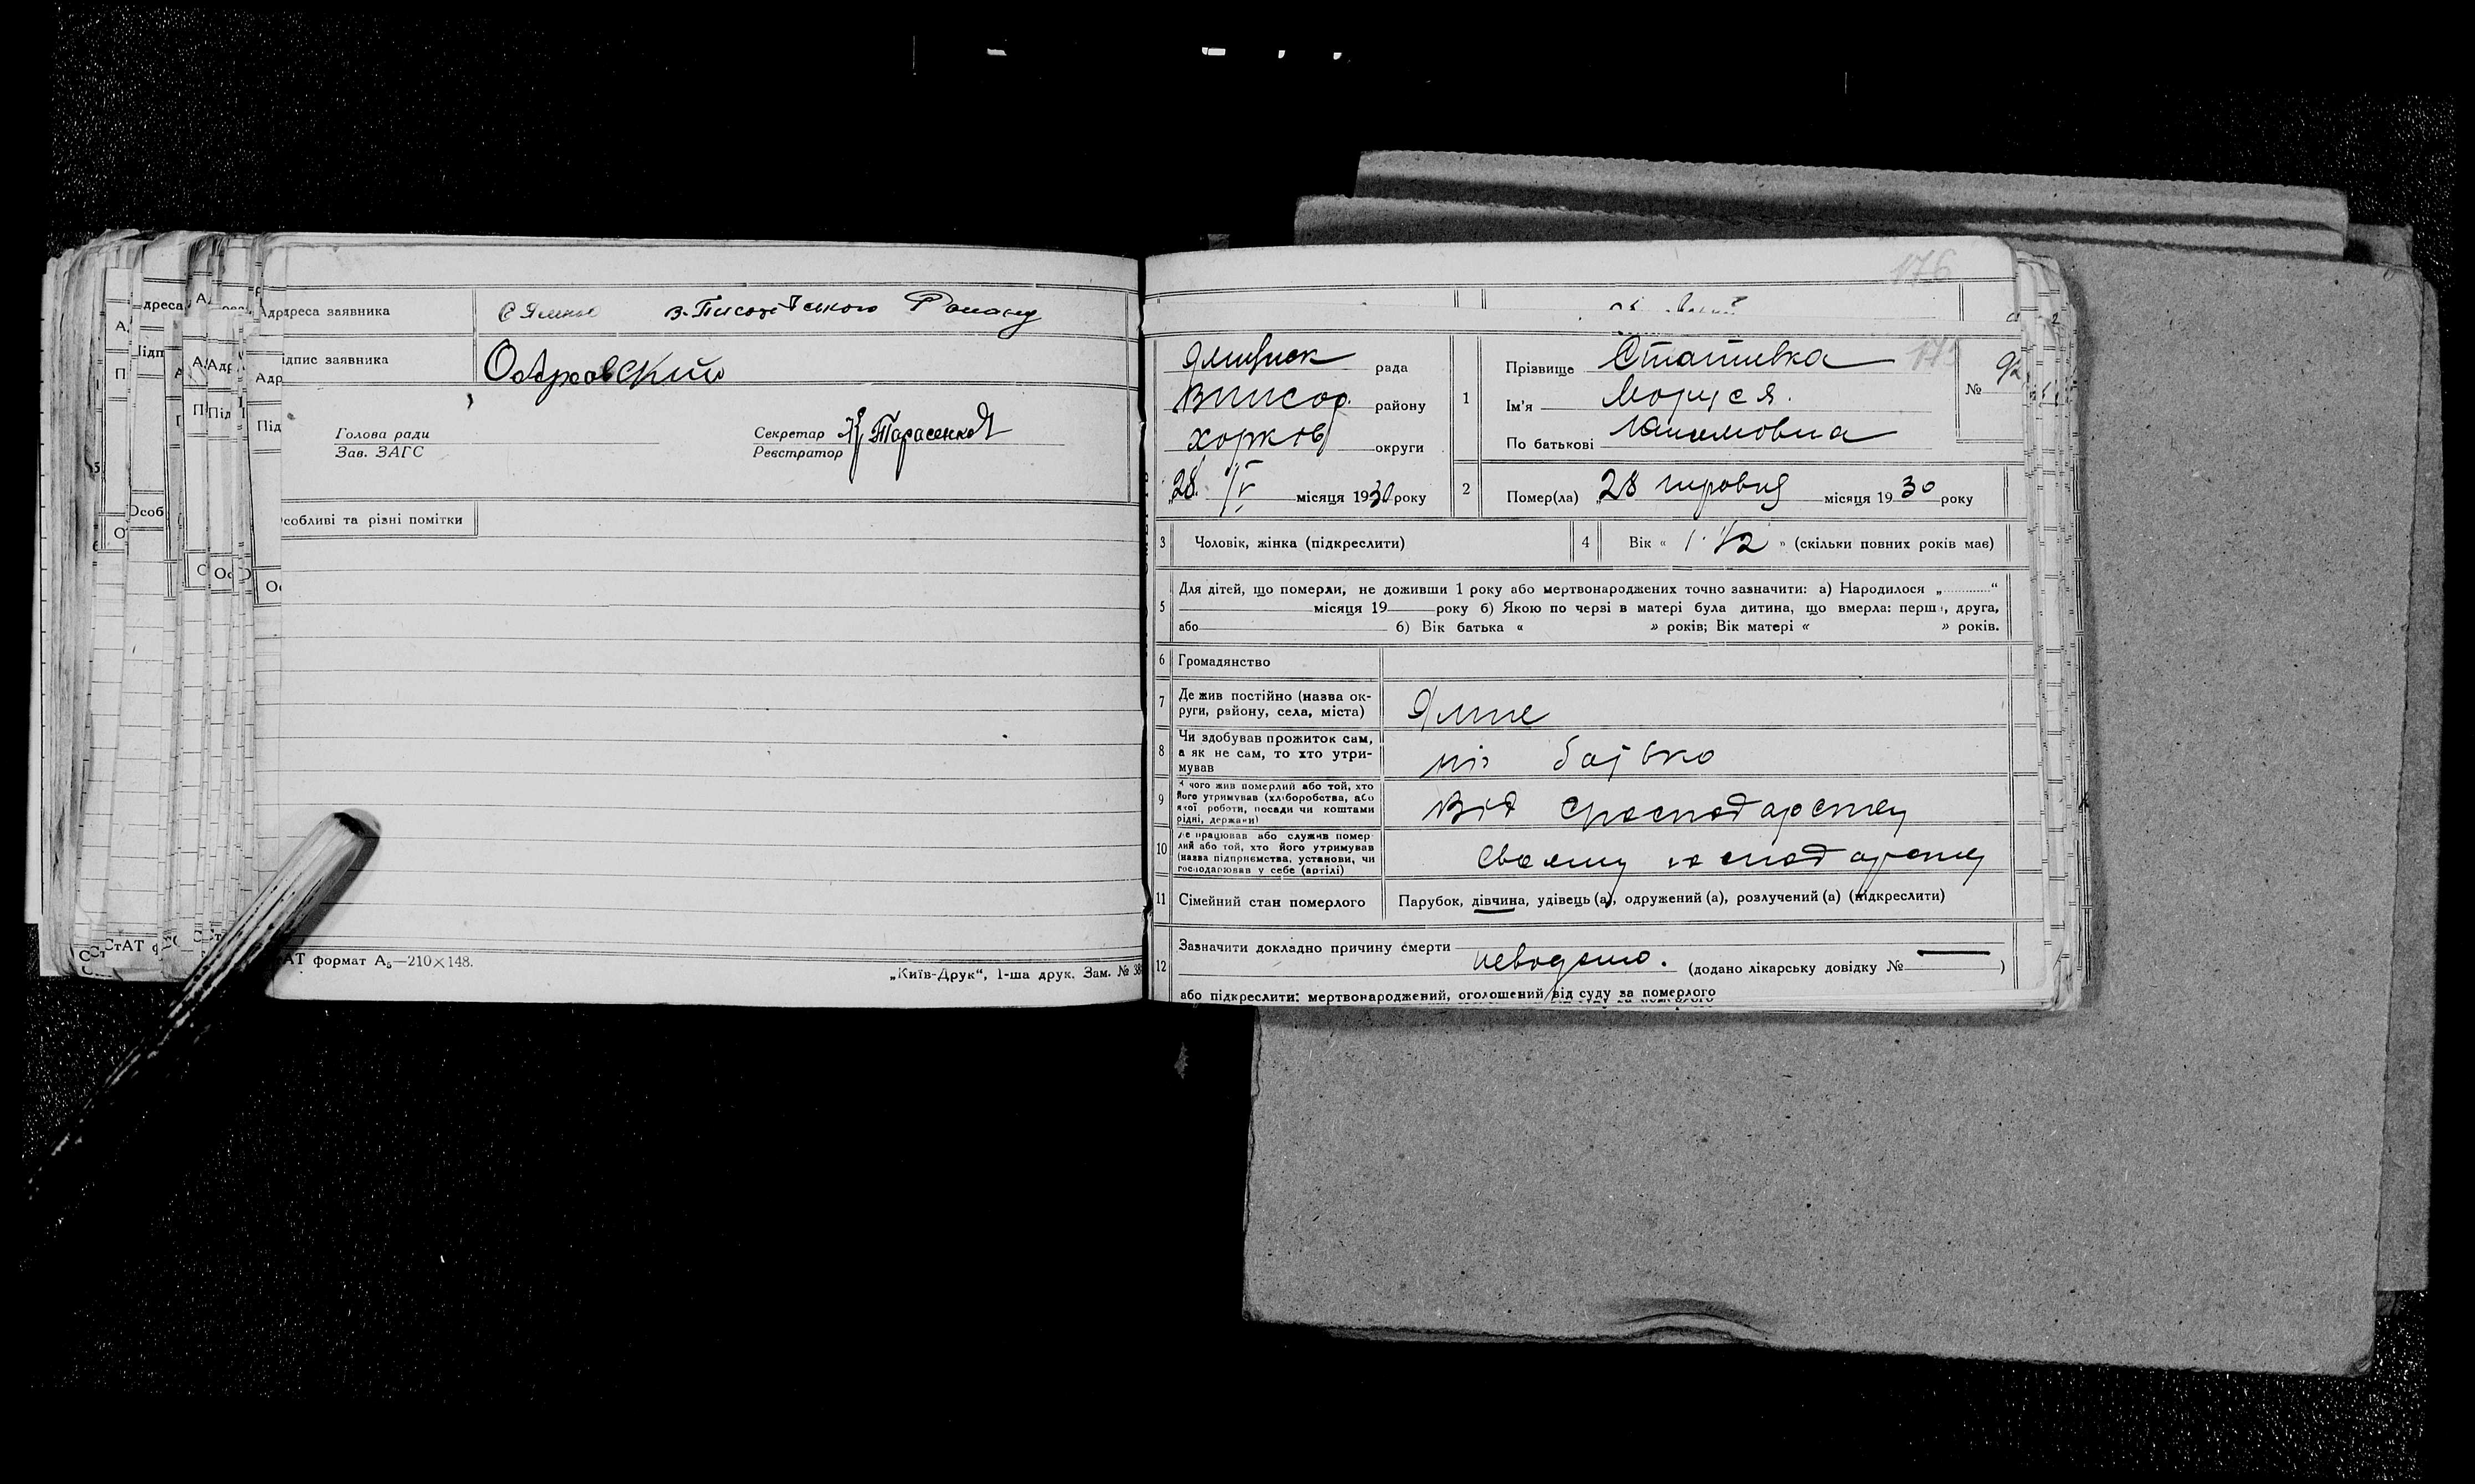 Адреса заявника
В-Писарівського Району
Підпис заявника
Островский
Голова ради
Зав. ЗАГС
Секретар Тарасенко
Реєстратор
Особливі та різні помітки
СтАТ формат А5—210×148.
„Київ-Друк“, 1-ша друк. Зам. № 38
176
рада
району
округи
28 IV місяця 1930 року
1
Прізвище Стативка
Ім'я Моруся.
По батькові
№ 92
2
Помер(ла) 28 місяця 1930 року
3 Чоловік, жінка (підкреслити)
4 Вік « 1 1/2 » (скільки повних років має)
5
Для дітей, що померли, не доживши 1 року або мертвонароджених точно зазначити: а) Народилося „ “
місяця 19 року б) Якою по черзі в матері була дитина, що вмерла: перша, друга,
або б) Вік батька « » років; Вік матері « » років.
6 Громадянство
7 Де жив постійно (назва ок-
руги, району, села, міста)
Ямне
8 Чи здобував прожиток сам,
а як не сам, то хто утри-
мував
ні батько
9 З чого жив померлий або той, хто
його утримував (хліборобства, або
якої роботи, посади чи коштами
рідні, держави)
Від Господарства
10 Де працював або служив помер-
лий або той, хто його утримував
(назва підприємства, установи, чи
господарював у себе (артілі)
Своєму господарству
11 Сімейний стан померлого
Парубок, дівчина, удівець (а), одружений (а), розлучений (а) (підкреслити)
12
Зазначити докладно причину смерти
неводомо. (додано лікарську довідку № — )
або підкреслити: мертвонароджений, оголошений від суду за померлого